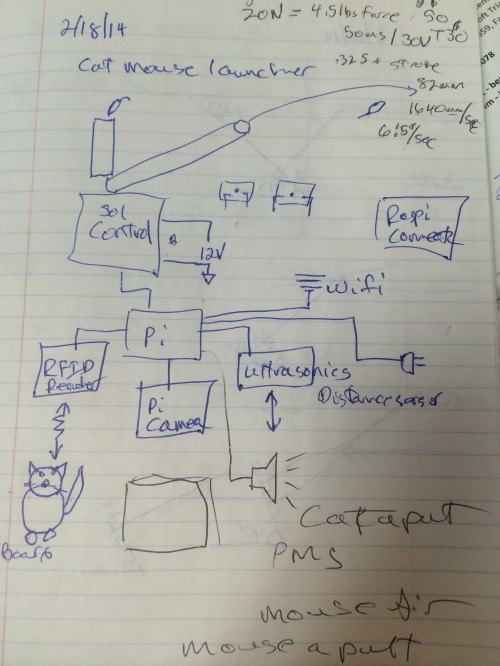 20N = 4.5lbs force
50ms / 30V T30
2/18/14
.325 + stroke
Cat mouse launcher
82mm
1640mm/sec
6.5'/sec
Sol
Control
12V
Raspi
Pi
Wifi
RFID
Reader
Pi
Camera
Ultrasonics
Distance sensor
Catapult
PMS
Mouse Air
Mouse a pult